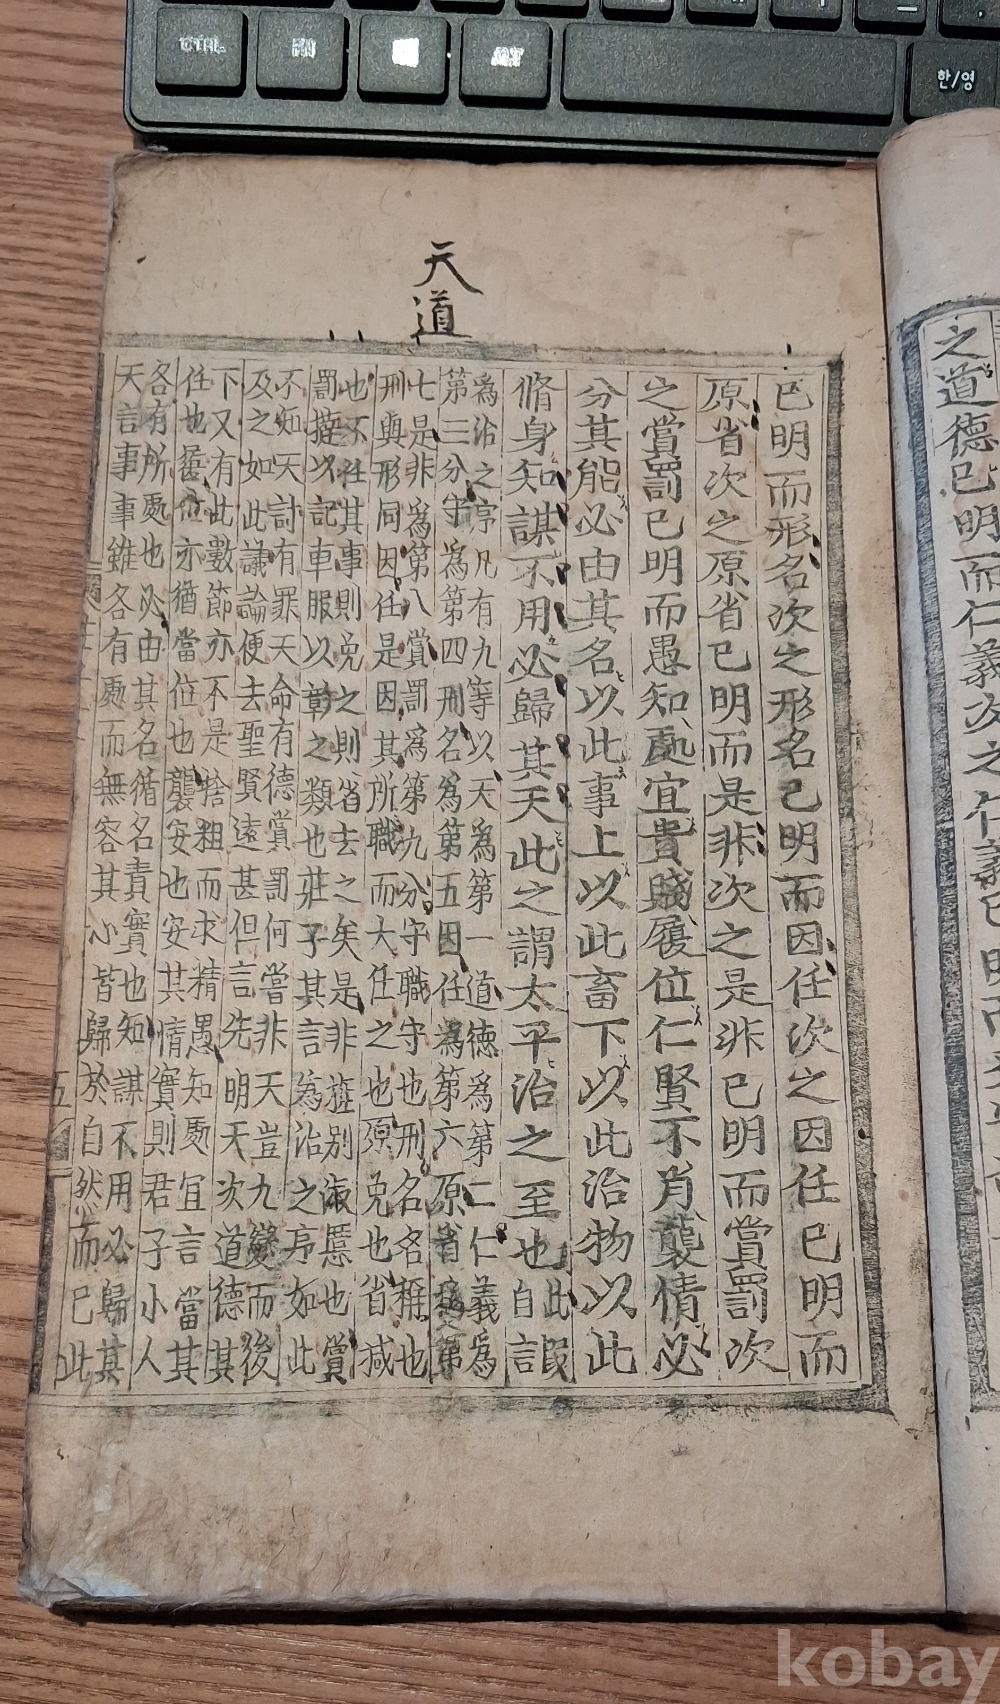 CTRL
한/영
天道
已明而形名次之形名已明而因任次之因任已明而
原省次之原省已明而是非次之是非已明而賞罰次
之賞罰已明而愚知處宜貴賤履位仁賢不肖襲情必
分其能必由其名以此事上以此畜下以此治物以此
脩身知謀不用必歸其天此之謂太平治之至也
此段
自言
爲治之序凡有九等以天爲第一道德爲第二仁義爲
第三分守爲第四刑名爲第五因任爲第六原省爲第
七是非爲第八賞罰爲第九分守職守也刑名名稱也
刑與形同因任是因其所職而大任之也原免也省減
也不任其事則免之則省去之矣是非旌別淑慝也賞
罰撻以記車服以彰之類也莊子其言爲治之序如此
不知天討有罪天命有德賞罰何嘗非天豈九變而後
及之如此議論便去聖賢遠甚但言先明天次道德其
下又有此數節亦不是捨粗而求精愚知處宜言當其
任也履位亦猶當位也襲安也安其情實則君子小人
各有所處也必由其名循名責實也知謀不用必歸其
天言事事雖各有處而無容其心皆歸於自然而已此
五
之道德已明而仁義次之仁義已明而
kobay